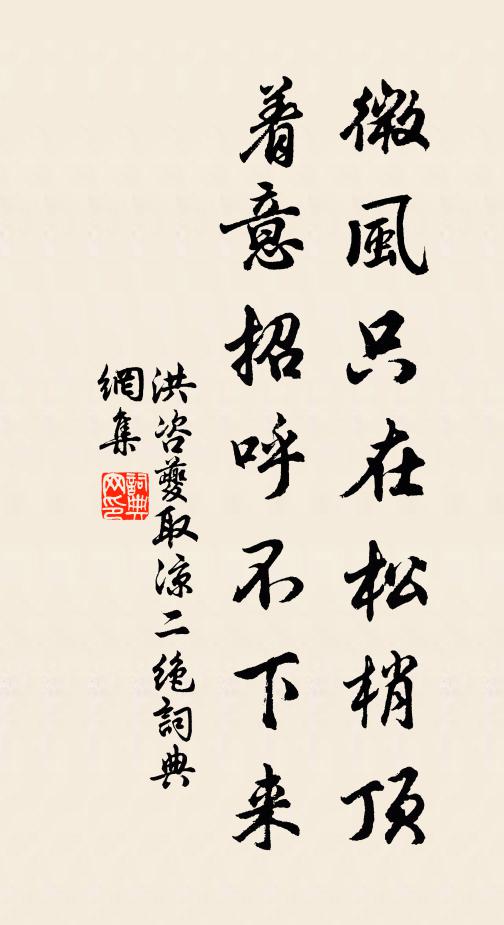 微風只在松梢顶
着意招呼不下来
洪咨夔取凉二绝詞典
網集
詞典网印